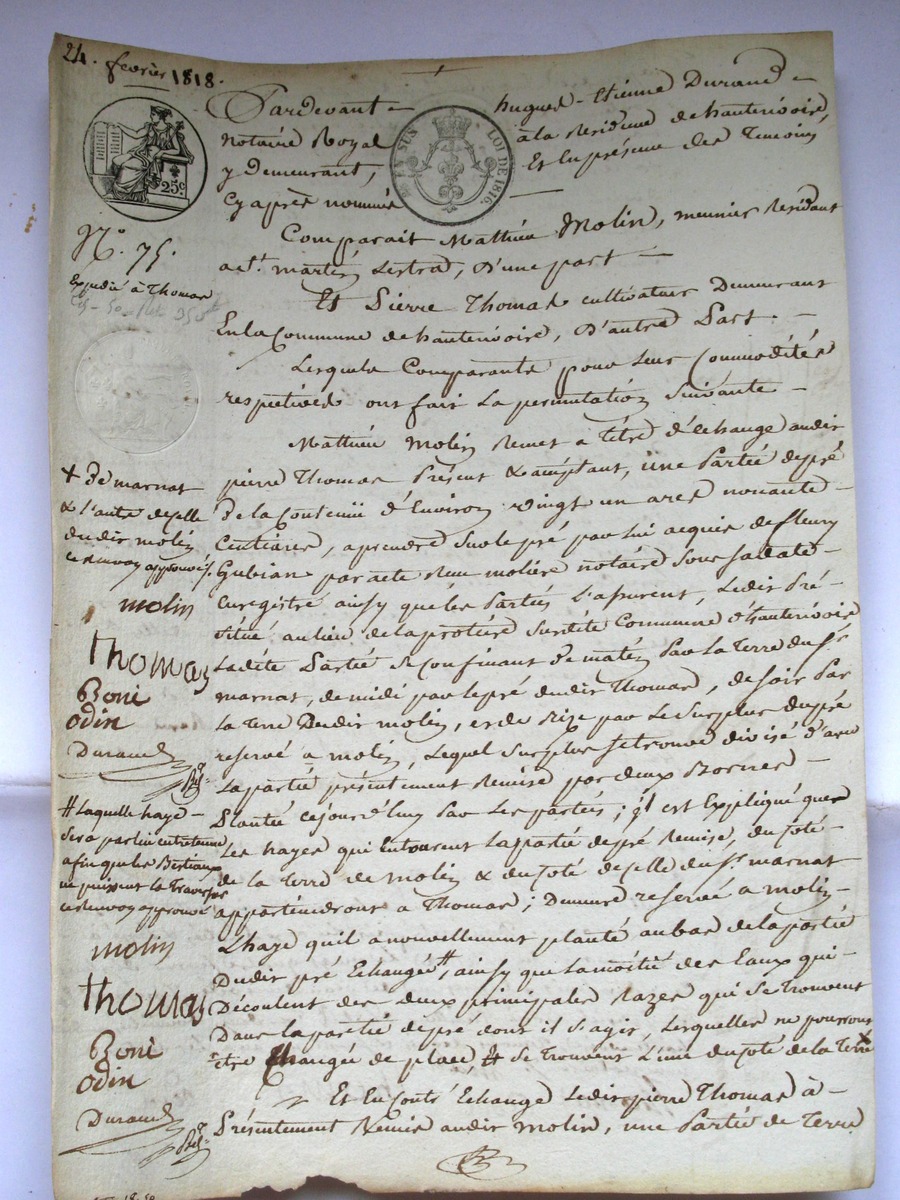 24. fevrier 1818.
Pardevant hugues-Etienne Durand
notaire Royal à la Residence de hauterivoire,
y Demeurant, Et En présence des Temoins
Cy après nommés
25c.
EN SUS LOI DE 1816.
N.° 75.
Expedié à Thomas
Comparait Mathieu Molin, meunier Residant
a St. martin Lestra, D'une part
Et Pierre Thomas cultivateur Demeurant
En la Commune de hauterivoire, D'autre Part.
Lesquels Comparants pour leur Commodités
respectives ont fait La permutation Suivante
Mathieu Molin Remet à titre d'échange audit
pierre Thomas Présent & acceptant, une Partie de pré
De la Contenue d'Environ vingt un ares nonante
Centiares, a prendre Sur le pré par lui acquis de fleury
Gubian par acte Reçu molière notaire Sous Sa date
Enregistré ainsy que les Parties L'assurent, Ledit Pré
Situé au lieu de la protière Surdite Commune d'hauterivoire
Ladite Partie Se Confinant De matin Par La Terre du Sr.
marnat, de midi par le pré dudit Thomas, de Soir Par
la Terre Dudit molin, et de Bize par Le Surplus du pré
reservé a molin, Lequel Surplus Se trouve divisé d'avec
La partie présentement Remise par deux Bornes
Plantées cejourd'huy Par Les parties; il est Expliqué que
Les hayes qui Entourent La partie de pré Remise, du Coté
de la Terre de Molin & du Coté de celle du Sr. marnat
appartiendront a Thomas; Demeure reservée a molin
L'haye qu'il a nouvellement planté au bas de la partie
Dudit pré Echangée #, ainsy que La moitié des Eaux qui
Découlent des deux principales Razes qui Se Trouvent
Dans la partie de pré dont il S'agit, Lesquelles ne pourront
être Changée de place, & Se trouvent L'une du Coté de la Terre +
Et En Contr'Echange Ledit pierre Thomas à
Présentement Remis audit Molin, une Partie de Terre
+ De marnat
& L'autre de celle
dudit molin
ce renvoy approuvé
molin
Thomas
Boni
odin
Durand
# Laquelle haye
Sera par lui entretenue
afin que les Bestiaux
ne puissent la Traverser
ce renvoy approuvé
molin
Thomas
Boni
odin
Durand